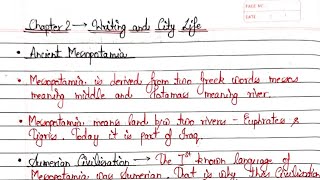 PAGE NO.
DATE
Chapter 2 → Writing and City Life
• Ancient Mesopotamia
• Mesopotamia is derived from two Greek words mesos
meaning middle and Potamass meaning river.
• Mesopotamia means land b/w two rivers - Euphrates &
Tigris. Today it is part of Iraq.
• Sumerian Civilisation → The Ist known language of
Mesopotamia was Sumerian. That is why this Civilization